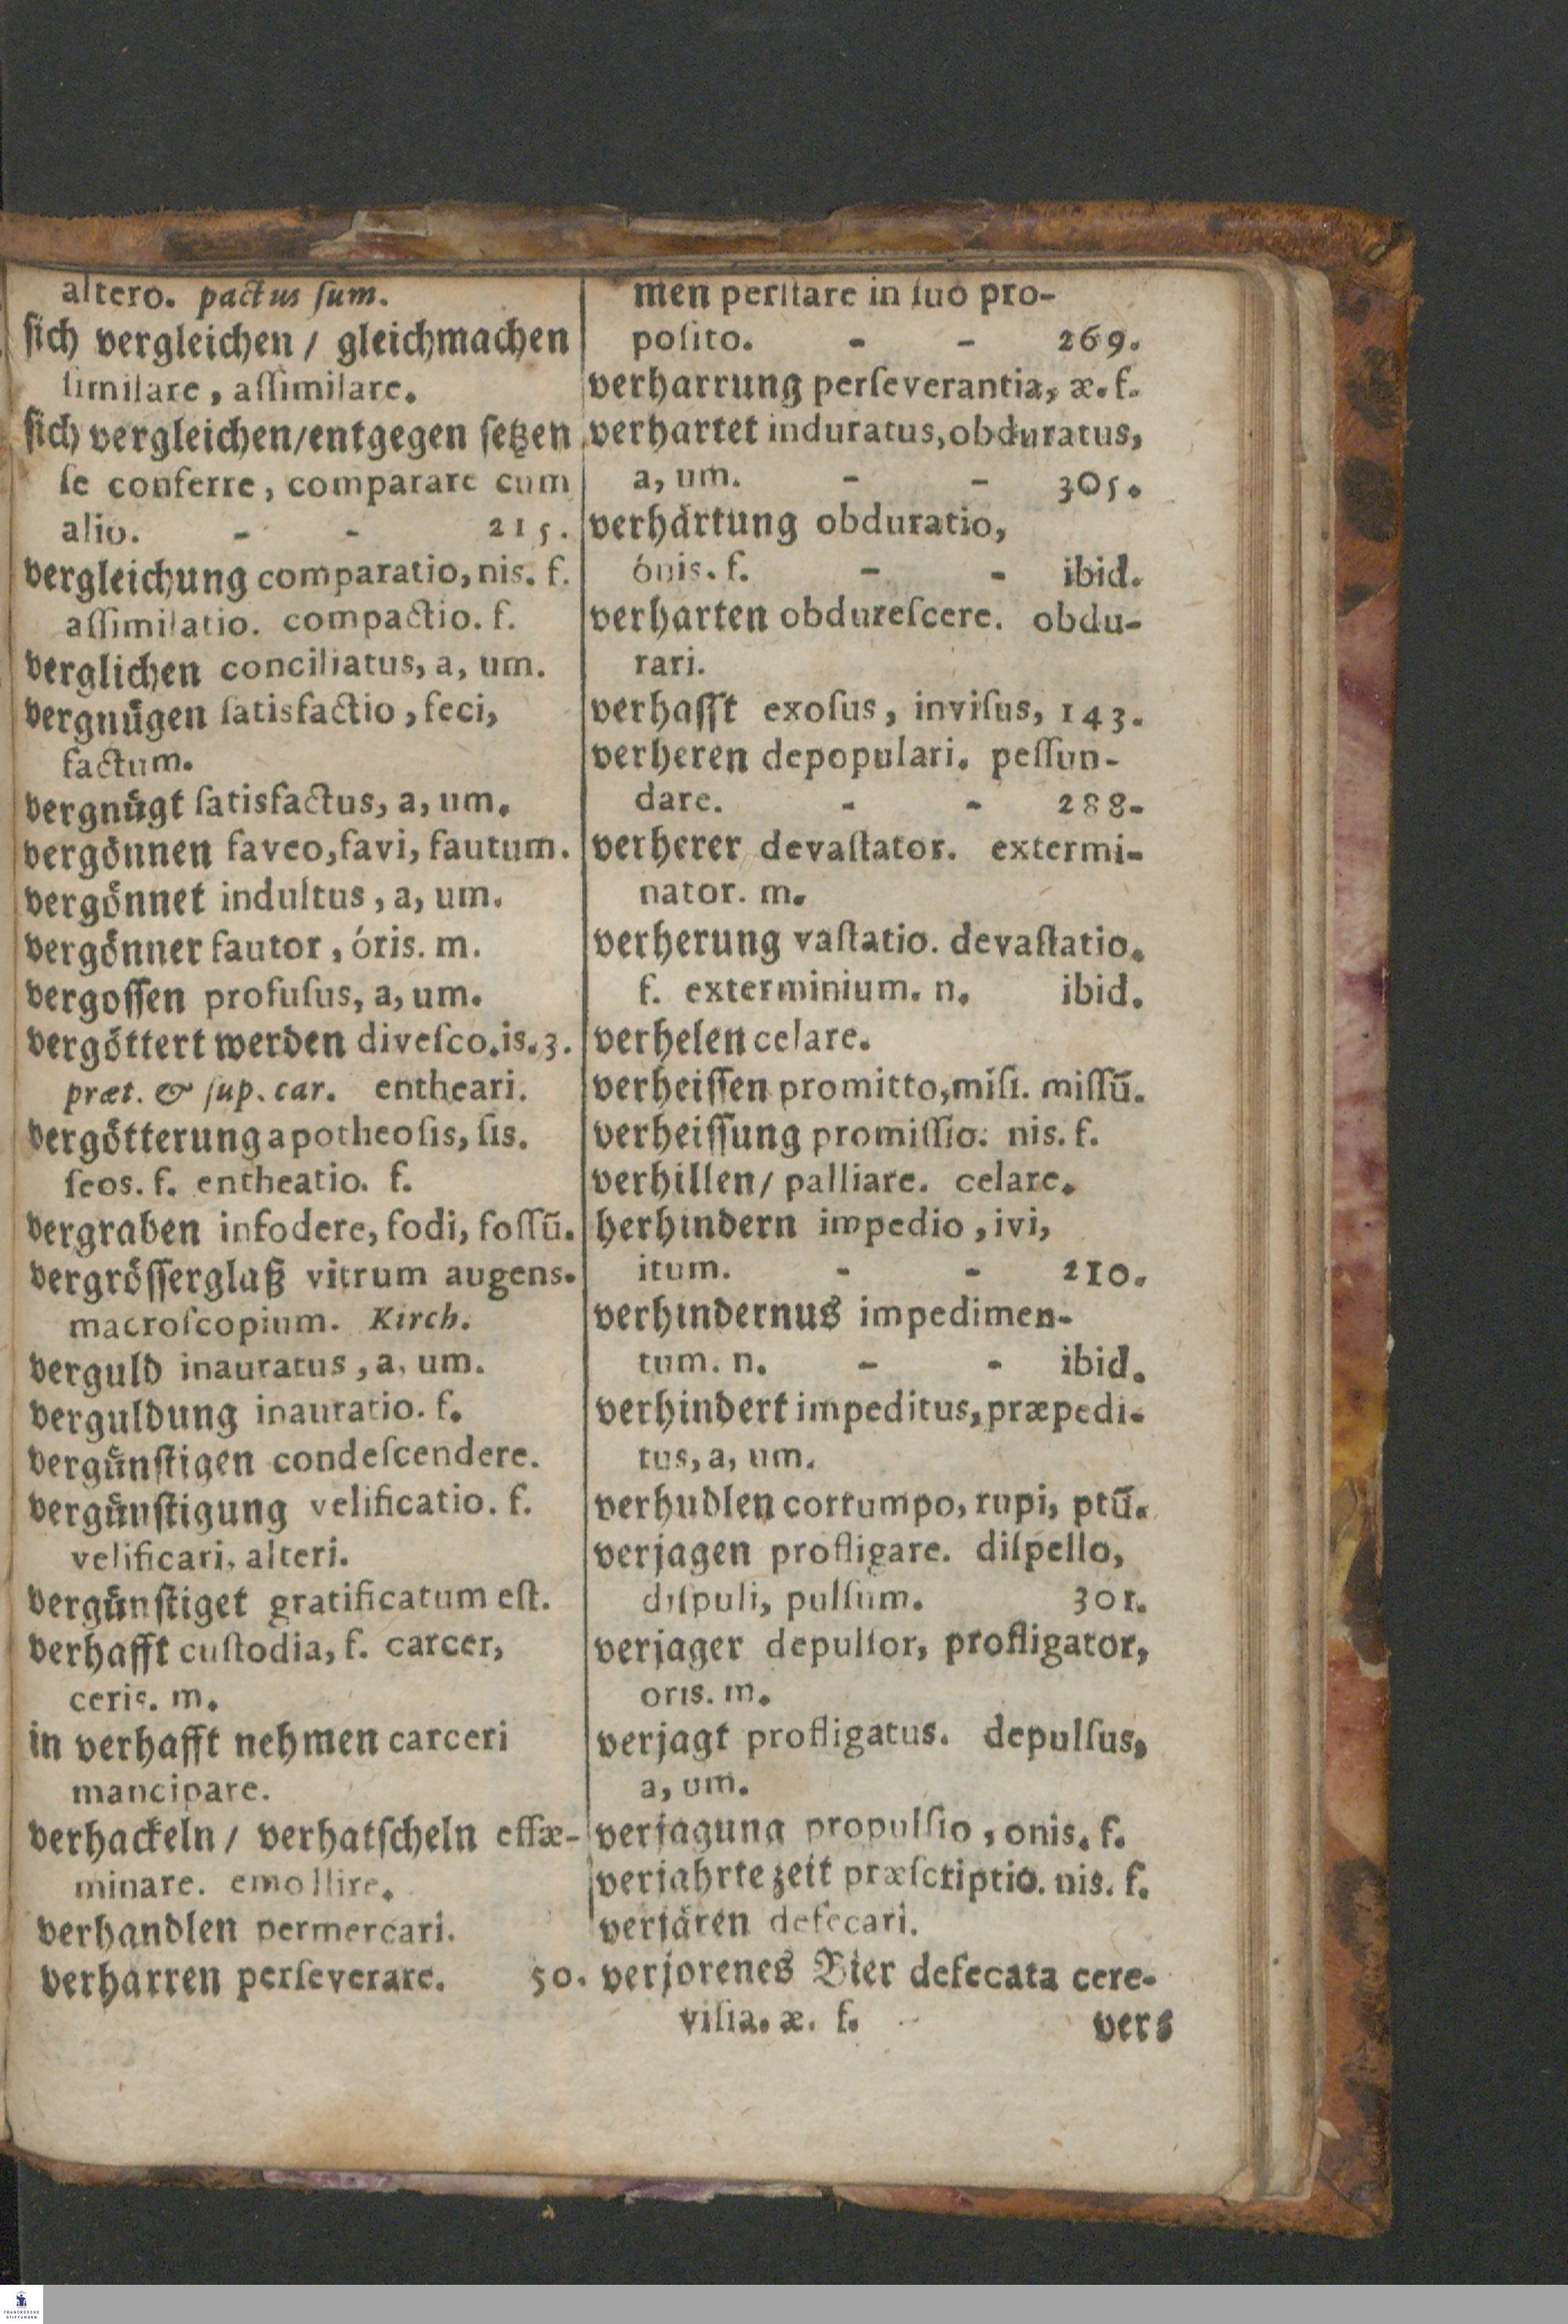 altero. pactus ſum.
ſich vergleichen / gleichmachen
ſimilare, aſſimilare.
ſich vergleichen/entgegen ſetzen
ſe conferre, comparare cum
alio. - - 215.
vergleichung comparatio, nis. f.
aſſimilatio. compactio. f.
verglichen conciliatus, a, um.
vergnuͤgen ſatisfactio, feci,
factum.
vergnuͤgt ſatisfactus, a, um.
vergoͤnnen faveo, favi, fautum.
vergoͤnnet indultus, a, um.
vergoͤnner fautor, óris. m.
vergoſſen profuſus, a, um.
vergoͤttert werden diveſco.is.3.
præt. & ſup. car. entheari.
vergoͤtterung apotheoſis, ſis.
ſeos. f. entheatio. f.
vergraben infodere, fodi, foſſū.
vergroͤſſerglaß vitrum augens.
macroſcopium. Kirch.
verguld inauratus, a, um.
verguldung inauratio. f.
verguͤnſtigen condeſcendere.
verguͤnſtigung velificatio. f.
velificari, alteri.
verguͤnſtiget gratificatum eſt.
verhafft cuſtodia, f. carcer,
ceris. m.
in verhafft nehmen carceri
mancipare.
verhackeln / verhatſcheln effæ-
minare. emollire.
verhandlen permercari.
verharren perſeverare. 50.
men perſtare in ſuo pro-
poſito. - - 269.
verharrung perſeverantia, æ. f.
verhartet induratus, obduratus,
a, um. - - 305.
verhaͤrtung obduratio,
ónis. f. - - ibid.
verharten obdureſcere. obdu-
rari.
verhaſſt exoſus, inviſus, 143.
verheren depopulari. peſſun-
dare. - - 288-
verherer devaſtator. extermi-
nator. m.
verherung vaſtatio. devaſtatio.
f. exterminium. n. ibid.
verhelen celare.
verheiſſen promitto, miſi. miſſū.
verheiſſung promiſſio. nis. f.
verhillen/ palliare. celare.
herhindern impedio, ivi,
itum. - - 210.
verhindernus impedimen-
tum. n. - - ibid.
verhindert impeditus, præpedi-
tus, a, um.
verhudlen corrumpo, rupi, ptū.
verjagen profligare. diſpello,
diſpuli, pulſum. 301.
verjager depulſor, profligator,
oris. m.
verjagt profligatus. depulſus,
a, um.
verjagung propulſio, onis. f.
verjahrte zeit præſcriptio. nis. f.
verjaͤren defecari.
verjorenes Bier defecata cere-
viſia. æ. f.
vers
FRANCKESCHE
STIFTUNGEN